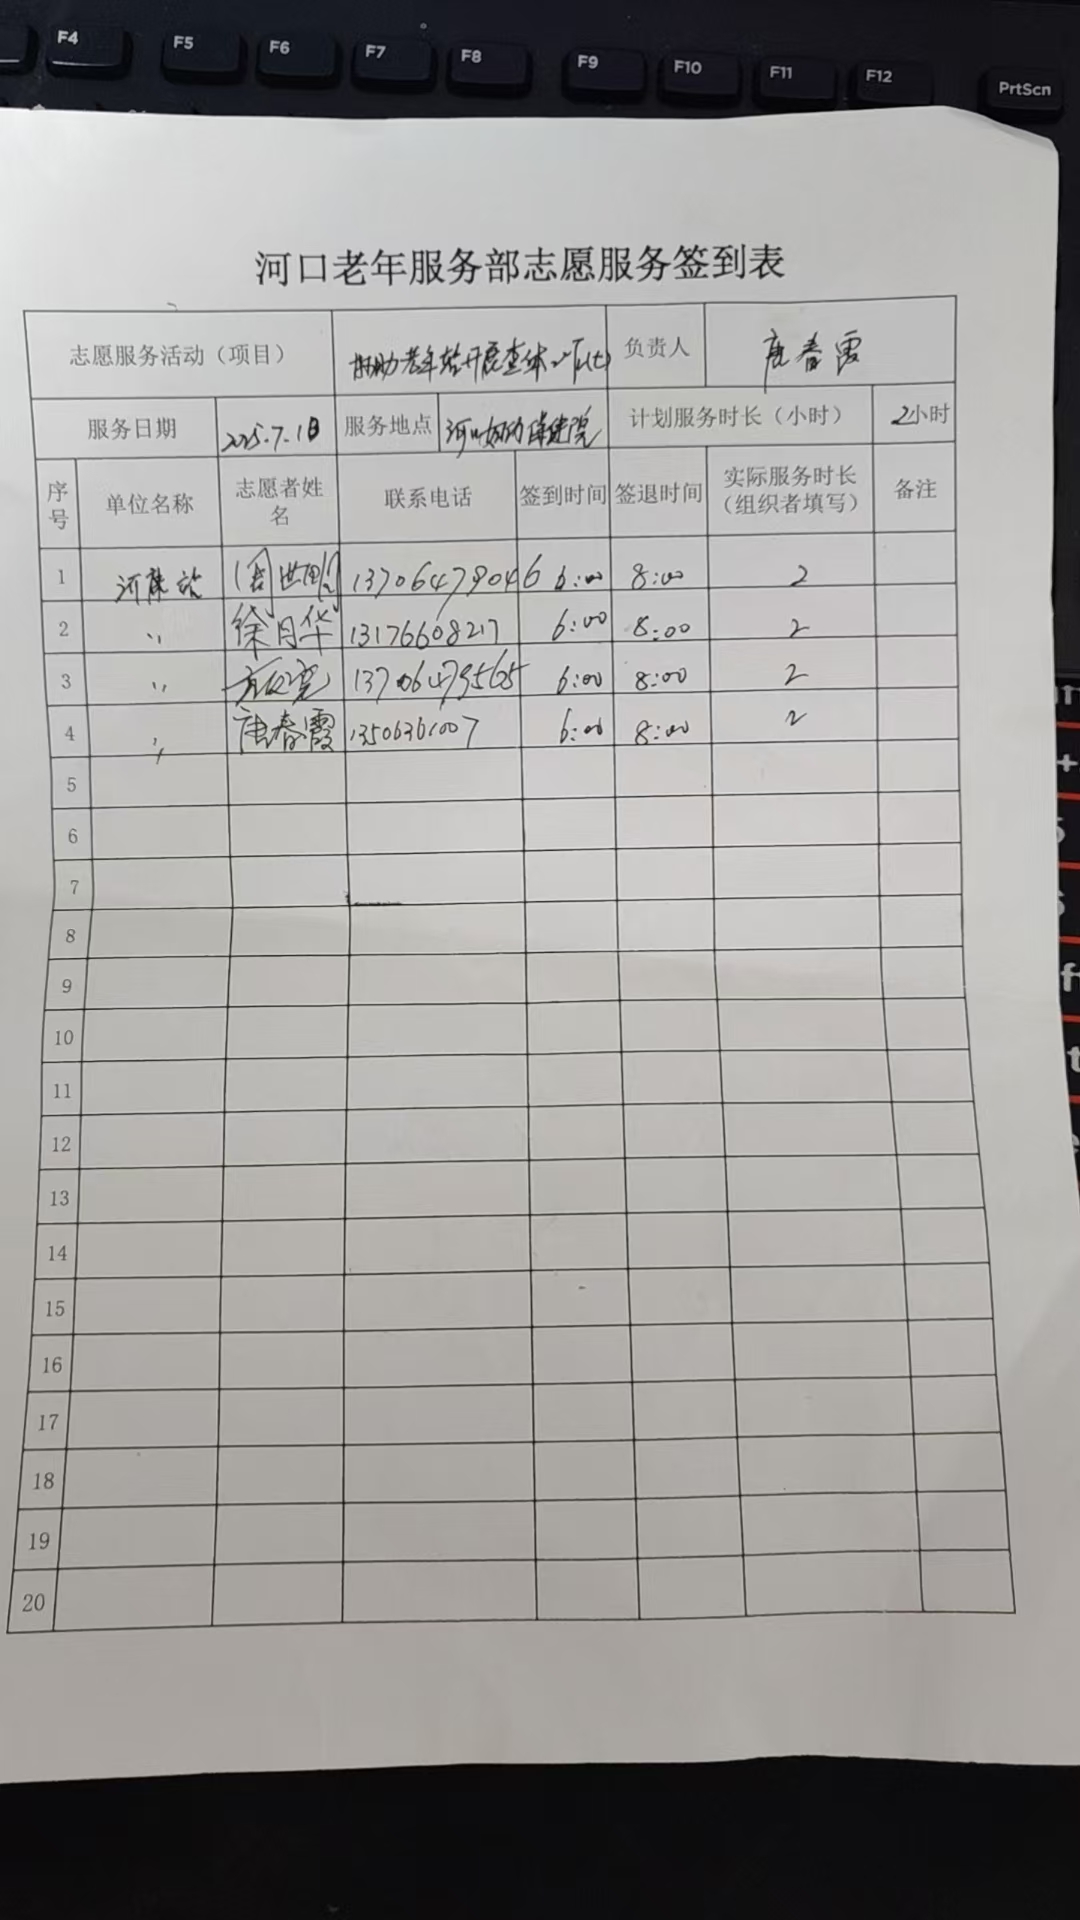 F4 F5 F6 F7 F8 F9 F10 F11 F12 PrtScn
河口老年服务部志愿服务签到表
志愿服务活动（项目） 协助老年站开展查体 负责人 唐春霞
服务日期 2025.7.1日 服务地点 河口妇幼保健院 计划服务时长（小时） 2小时
序号 单位名称 志愿者姓名 联系电话 签到时间 签退时间 实际服务时长（组织者填写） 备注
1 河 站 周世明 13706479046 6:00 8:00 2
2 〃 徐月华 13176608217 6:00 8:00 2
3 〃 13706479565 6:00 8:00 2
4 〃 唐春霞 13506361007 6:00 8:00 2
5
6
7
8
9
10
11
12
13
14
15
16
17
18
19
20